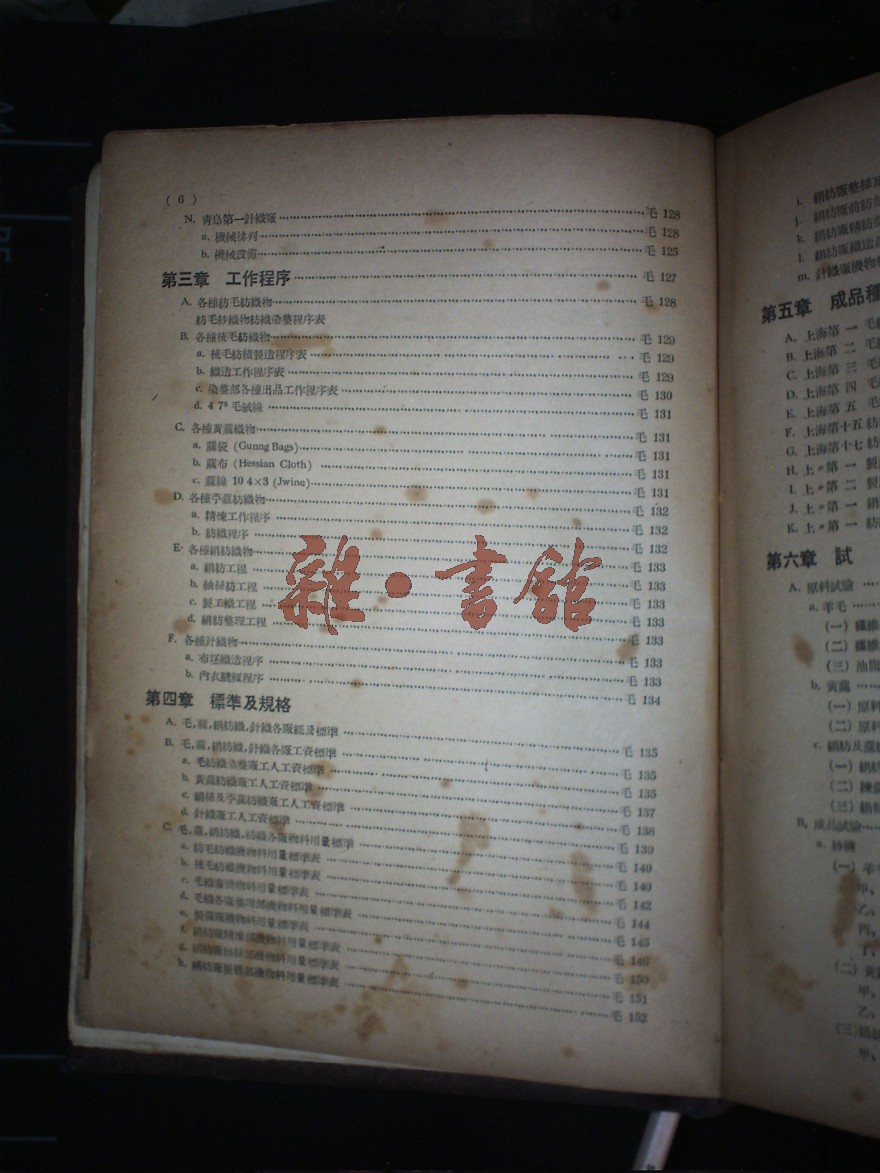 ( 6 )
N. 青島第一針織廠 毛 128
a. 機械排列 毛 128
b. 機械設備 毛 125
第三章 工作程序 毛 127
A. 各種紡毛紡織物 毛 128
紡毛紗織物紡織染整程序表
B. 各種梳毛紡織物 毛 129
a. 梳毛紡績製造程序表 毛 129
b. 織造工作程序表 毛 129
c. 染整部各種出品工作程序表 毛 130
d. 4 7s 毛絨線 毛 131
C. 各種黃蔴織物 毛 131
a. 蔴袋 (Gunng Bags) 毛 131
b. 蔴布 (Hessian Cloth) 毛 131
c. 蔴線 10 4×3 (Jwine) 毛 131
D. 各種苧蔴紡織物 毛 132
a. 精煉工作程序 毛 132
b. 紡織程序 毛 132
E. 各種絹紡織物 毛 133
a. 絹紡工程 毛 133
b. 抽絲紡工程 毛 133
c. 製工織工程 毛 133
d. 絹紡整理工程 毛 133
F. 各種針織物 毛 133
a. 布坯織造程序 毛 133
b. 內衣縫紉程序 毛 134
第四章 標準及規格
A. 毛,蔴,絹紡織,針織各廠經及標準 毛 135
B. 毛,蔴,絹紡織,針織各廠工資標準 毛 135
a. 毛紡織染整廠工人工資標準 毛 135
b. 黃蔴紡織廠工人工資標準 毛 137
c. 絹絲及苧蔴紡織廠工人工資標準 毛 138
d. 針織廠工人工資標準 毛 139
C. 毛,蔴,絹紡織,紡織各廠物料用量標準 毛 140
a. 紡毛紡織機物料用量標準表 毛 140
b. 梳毛紡織機物料用量標準表 毛 142
c. 毛織廠機物料用量標準表 毛 144
d. 毛織各廠整理部機物料用量標準表 毛 145
e. 製蔴廠機物料用量標準表 毛 146
f. 絹紡廠精煉部機物料用量標準表 毛 150
g. 絹紡廠 部機物料用量標準表 毛 151
h. 絹紡廠製棉部機物料用量標準表 毛 152
雜·書館
i. 絹紡廠整絲
j. 絹紡廠前紡
k. 絹紡廠精紡
l. 絹紡廠織造
m. 針織廠機物
第五章 成品種
A. 上海第 一 毛
B. 上海第 二 毛
C. 上海第 三 毛
D. 上海第 四 毛
E. 上海第 五 毛
F. 上海第十五紡
G. 上海第十七紡
H. 上〃第 一 製
I. 上〃第 二 製
J. 上〃第 一 絹
K. 上〃第 一 紡
第六章 試
A. 原料試驗
a. 羊毛
(一) 纖維
(二) 纖維
(三) 油脂
b. 黃蔴
(一) 原料
(二) 原料
c. 絹紡及蔴
(一) 絹紡
(二) 練蔴
(三) 絹
B. 成品試驗
a. 紗線
(一) 羊
甲、
乙、
丙、
丁、
(二) 黃
甲、
乙、
(三) 絹
甲、